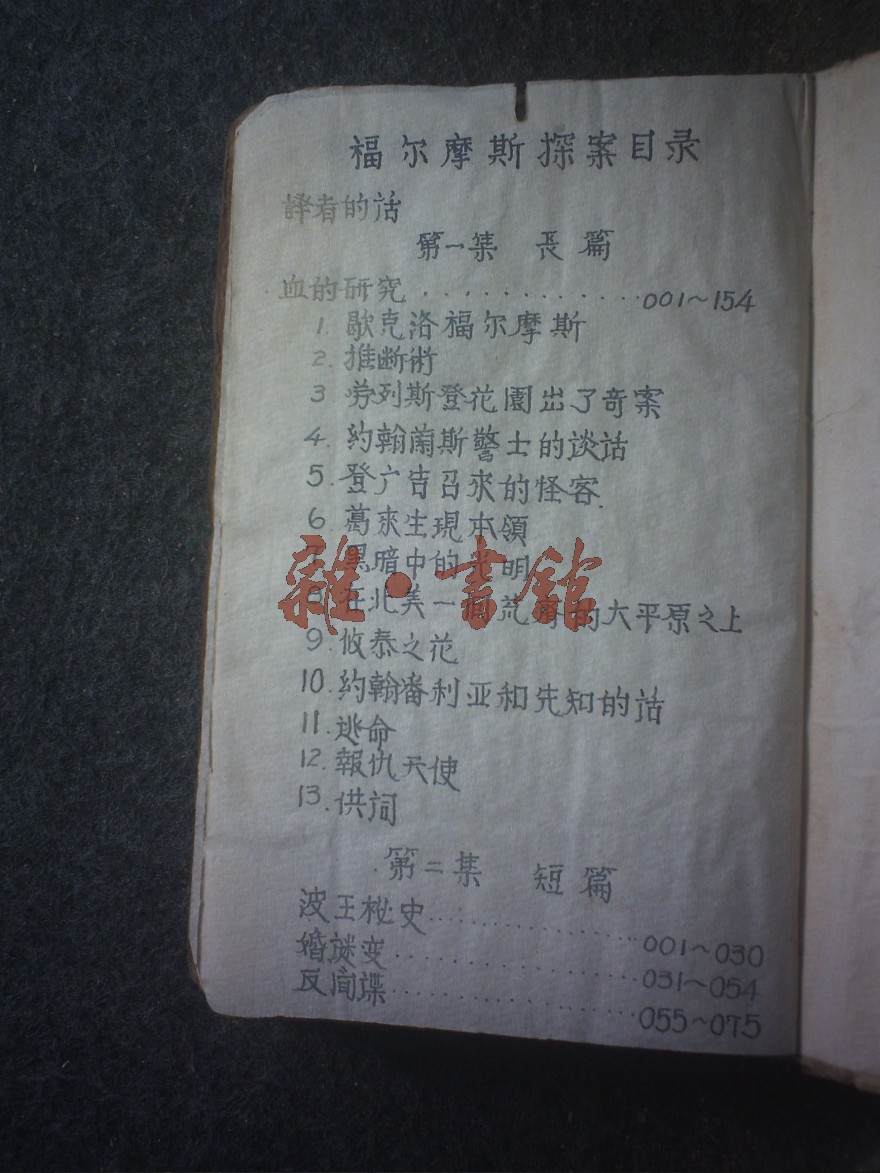 福尔摩斯探案目录
譯者的话
第一集 長篇
血的研究............001~154
1. 歇克洛福尔摩斯
2. 推断術
3 劳列斯登花園出了奇案
4. 約翰蘭斯警士的谈话
5. 登广告召來的怪客.
6 葛來生現本領
7 黑暗中的光明
8 在北美一個荒瘠的大平原之上
9. 攸泰之花
10. 約翰番利亚和先知的話
11. 逃命
12. 報仇天使
13. 供词
第二集 短篇
波王秘史............001~030
婚謎变............031~054
反间諜............055~075
雜·書館